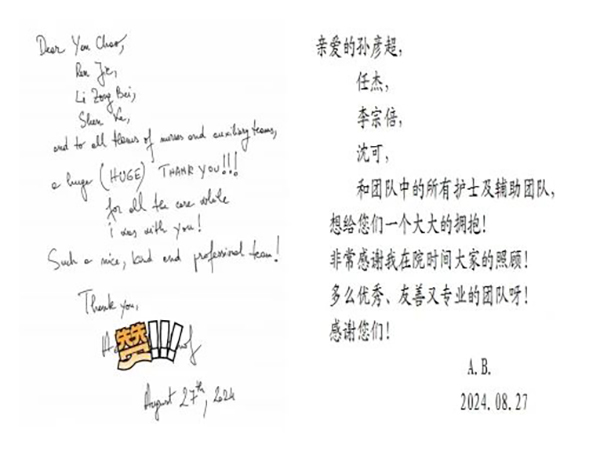 Dear Yan Chao,
Ren Jie,
Li Zong Bei,
Shen Ke,
and to all teams of nurses and auxiliary teams,
a huge (HUGE) THANK YOU!!!
for all the care while
i was with you!
Such a nice, kind and professional team!
Thank you,
赞!!!
August 27th, 2024
亲爱的孙彦超，
任杰，
李宗倍，
沈可，
和团队中的所有护士及辅助团队，
想给您们一个大大的拥抱！
非常感谢我在院时间大家的照顾！
多么优秀、友善又专业的团队呀！
感谢您们！
A.B.
2024.08.27